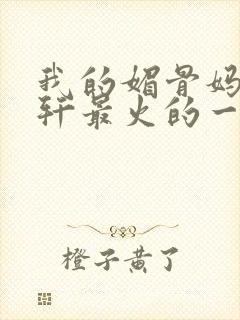 我的媚骨妈
轩最火的一
橙子黄了